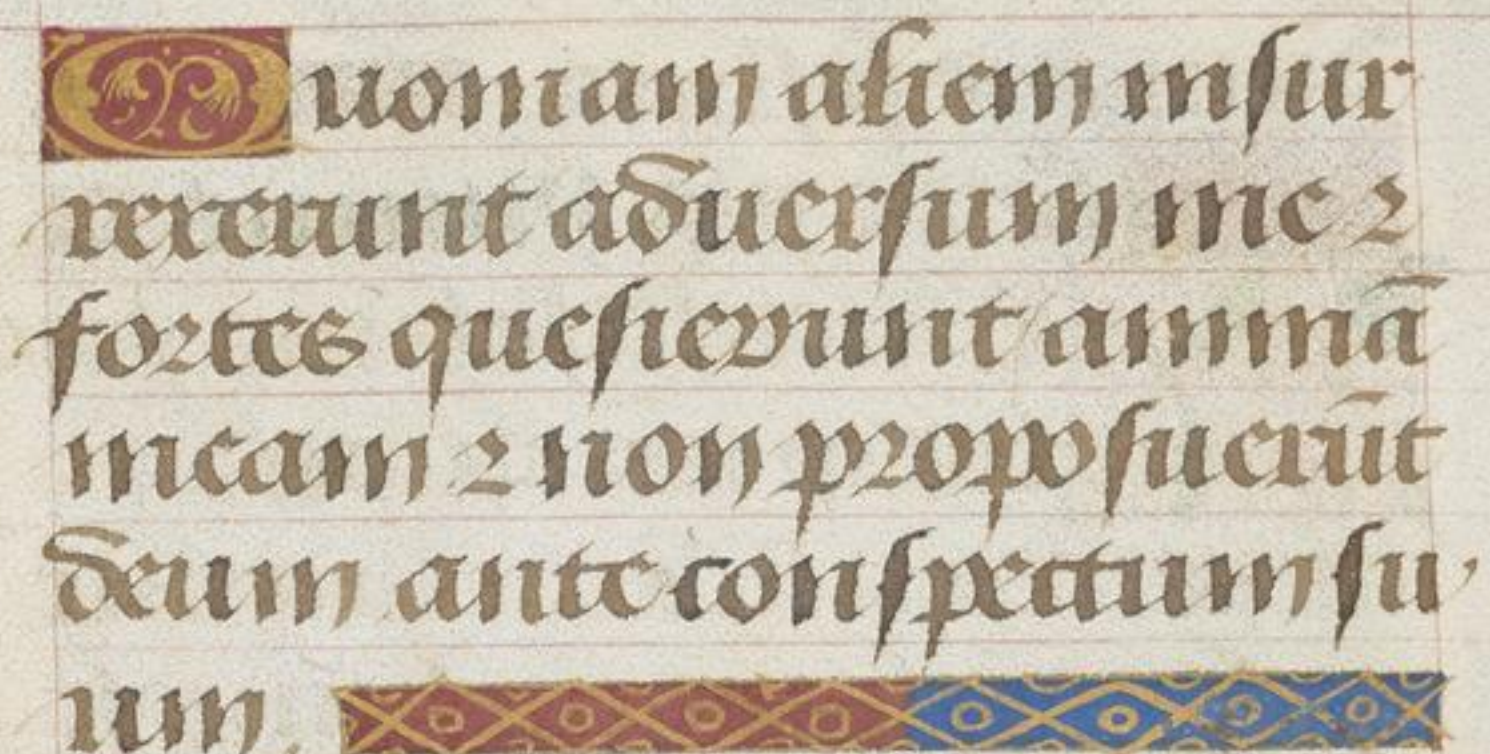 Quoniam alieni insur
rexerunt aduersum me ⁊
fortes quesierunt animā
meam ⁊ non proposuerūt
deum ante conspectum su
um.